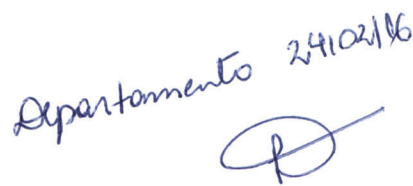 Departamento 24/02/16